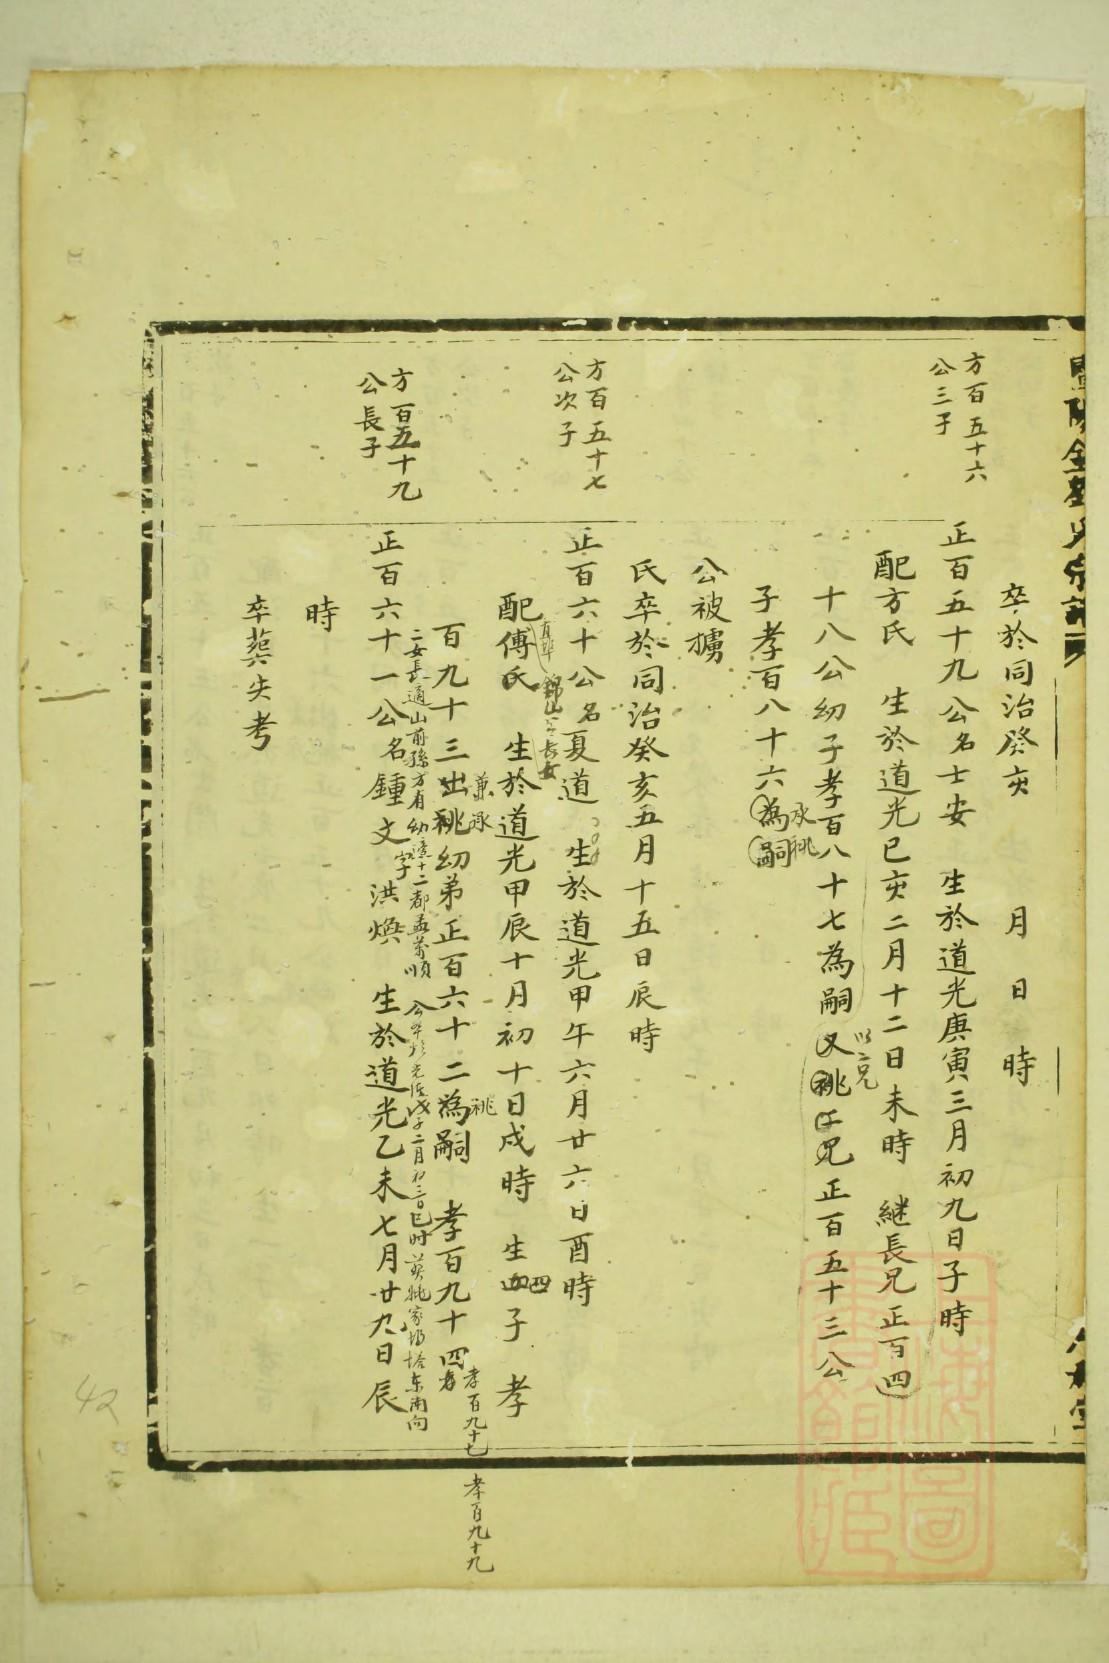 卒於同治癸亥 月 日 時
方百五十六
公三子
正百五十九公名士安 生於道光庚寅三月初九日子時
配方氏 生於道光已亥二月十二日未時 継長兄正百四
以二兄
十八公幼子孝百八十七為嗣又祧仁兄正百五十三公
承祧
子孝百八十六為嗣
公被擄
氏卒於同治癸亥五月十五日辰時
方百五十七
公次子
正百六十公名夏道 生於道光甲午六月廿六日酉時
配傅氏 生於道光甲辰十月初十日戌時 生四子 孝
兼承
祧
孝百九十七 孝百九十九
百九十三出祧幼弟正百六十二為嗣 孝百九十四
二女長適山前孫方有幼適十二都孟 順 公卒於光緒戊子二月初三日巳时葬姚家塢塔東南向
方百五十九
公長子
正百六十一公名鍾文字洪煥 生於道光乙未七月廿九日辰
時
卒葬失考
42